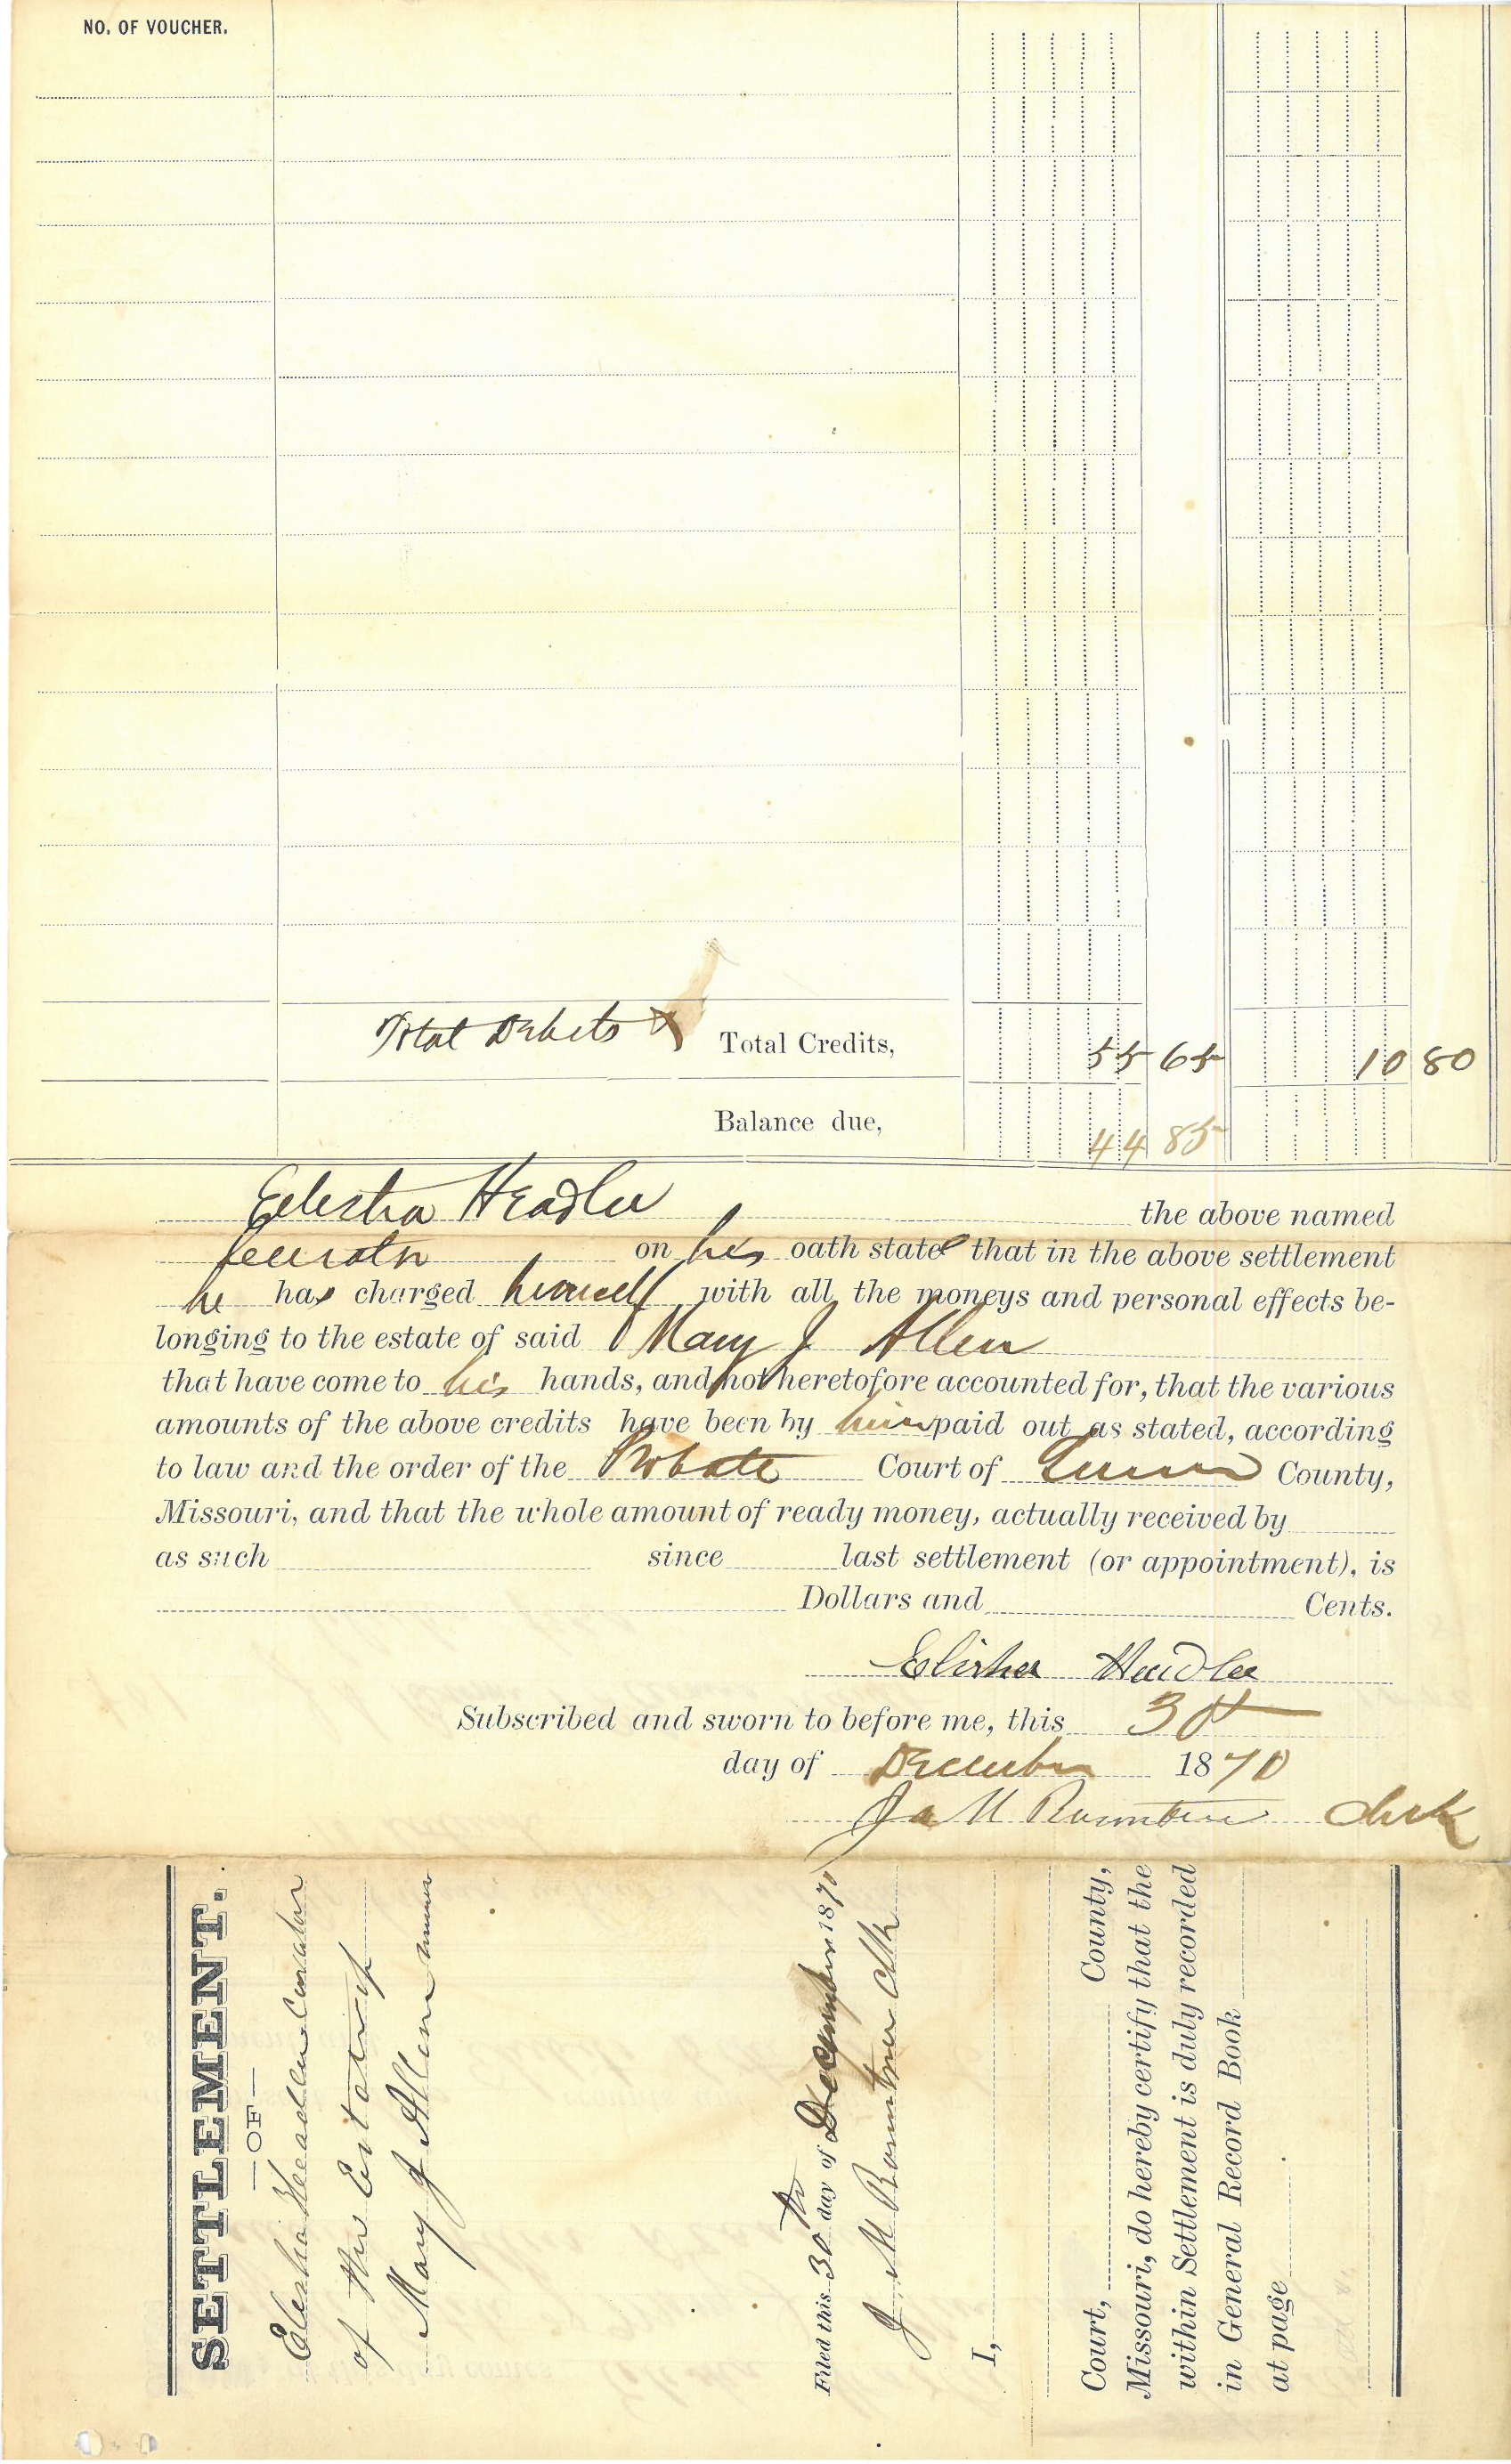 NO. OF VOUCHER.
Total Debits & Total Credits, 55 65 10 80
Balance due, 44 85
Elisha Headlee the above named
Curator on his oath states that in the above settlement
he has charged himself with all the moneys and personal effects be-
longing to the estate of said Mary J Allen
that have come to his hands, and not heretofore accounted for, that the various
amounts of the above credits have been by him paid out as stated, according
to law and the order of the Probate Court of Greene County,
Missouri, and that the whole amount of ready money, actually received by
as such since last settlement (or appointment), is
Dollars and Cents.
Elisha Headlee
Subscribed and sworn to before me, this 30
day of December 1870
J M Rountree Clerk
SETTLEMENT.
—OF—
Elisha Headlee Curator
of the Estate of
Mary J Allen minor
Filed this 30th day of December 1870
J M Rountree Clk
I,
Court, County,
Missouri, do hereby certify that the
within Settlement is duly recorded
in General Record Book
at page